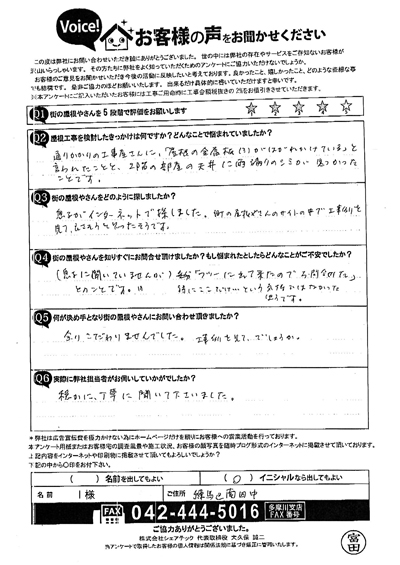 Voice!
お客様の声をお聞かせください
この度は弊社にお問い合わせいただき誠にありがとうございました。世の中には弊社の存在やサービスをご存知ないお客様が
沢山いらっしゃいます。その方たちに弊社をよく知っていただくためのアンケートにご協力いただけないでしょうか。
お客様のご意見をお聞かせいただき今後の活動に反映したいと考えております。良かったこと、嬉しかったこと、どのような些細な事
でも結構です。是非ご協力のほどお願いいたします。出来るだけ具体的に書いていただけますと幸いです。
Q1 街の屋根やさんを5段階で評価をお願いします
Q2 屋根工事を検討したきっかけは何ですか？どんなことで悩まれていましたか？
通りかかりの工事屋さんに、「屋根の金属板(?)がはがれかけている」と
言われたことと、2階の部屋の天井に雨漏りのシミが見つかった
ことです。
Q3 街の屋根やさんをどのように探しましたか？
息子がインターネットで探しました。街の屋根やさんのサイトの中で工事例を
見て、
Q4 街の屋根やさんを知りすぐにお問合せ頂けましたか？もし悩まれたとしたらどんなことがご不安でしたか？
(息子に聞いていませんが)
とのことです。
特にここだけ…という気持ではなかった
ようです。
Q5 何が決め手となり街の屋根やさんにお問い合わせ頂きましたか？
余りこだわりませんでした。工事例を見て、でしょうか。
Q6 実際に弊社担当者がお伺いしていかがでしたか？
穏かに、丁寧に聞いて下さいました。
＊弊社は広告宣伝費を極力かけない為にホームページだけを頼りにお客様への営業活動を行っております。
＊アンケート用紙またはお客様宅の調査風景や施工状況、お客様の顔写真を随時ブログ形式のインターネットに掲載させて頂いております。
上記内容をインターネットや印刷物に掲載させて頂いてもよろしいでしょうか？
下記の中から○印をお付下さい。
（　）名前を出してもよい　（○）イニシャルなら出してもよい
名前 I様 ご住所 練馬区南田中
FAX 042-444-5016 多摩川支店 FAX番号
ご協力ありがとうございました。
株式会社シェアテック 代表取締役 大久保 誠二
当アンケートで取得したお客様の個人情報は関係法規に基づき厳正に管理いたします。
富田